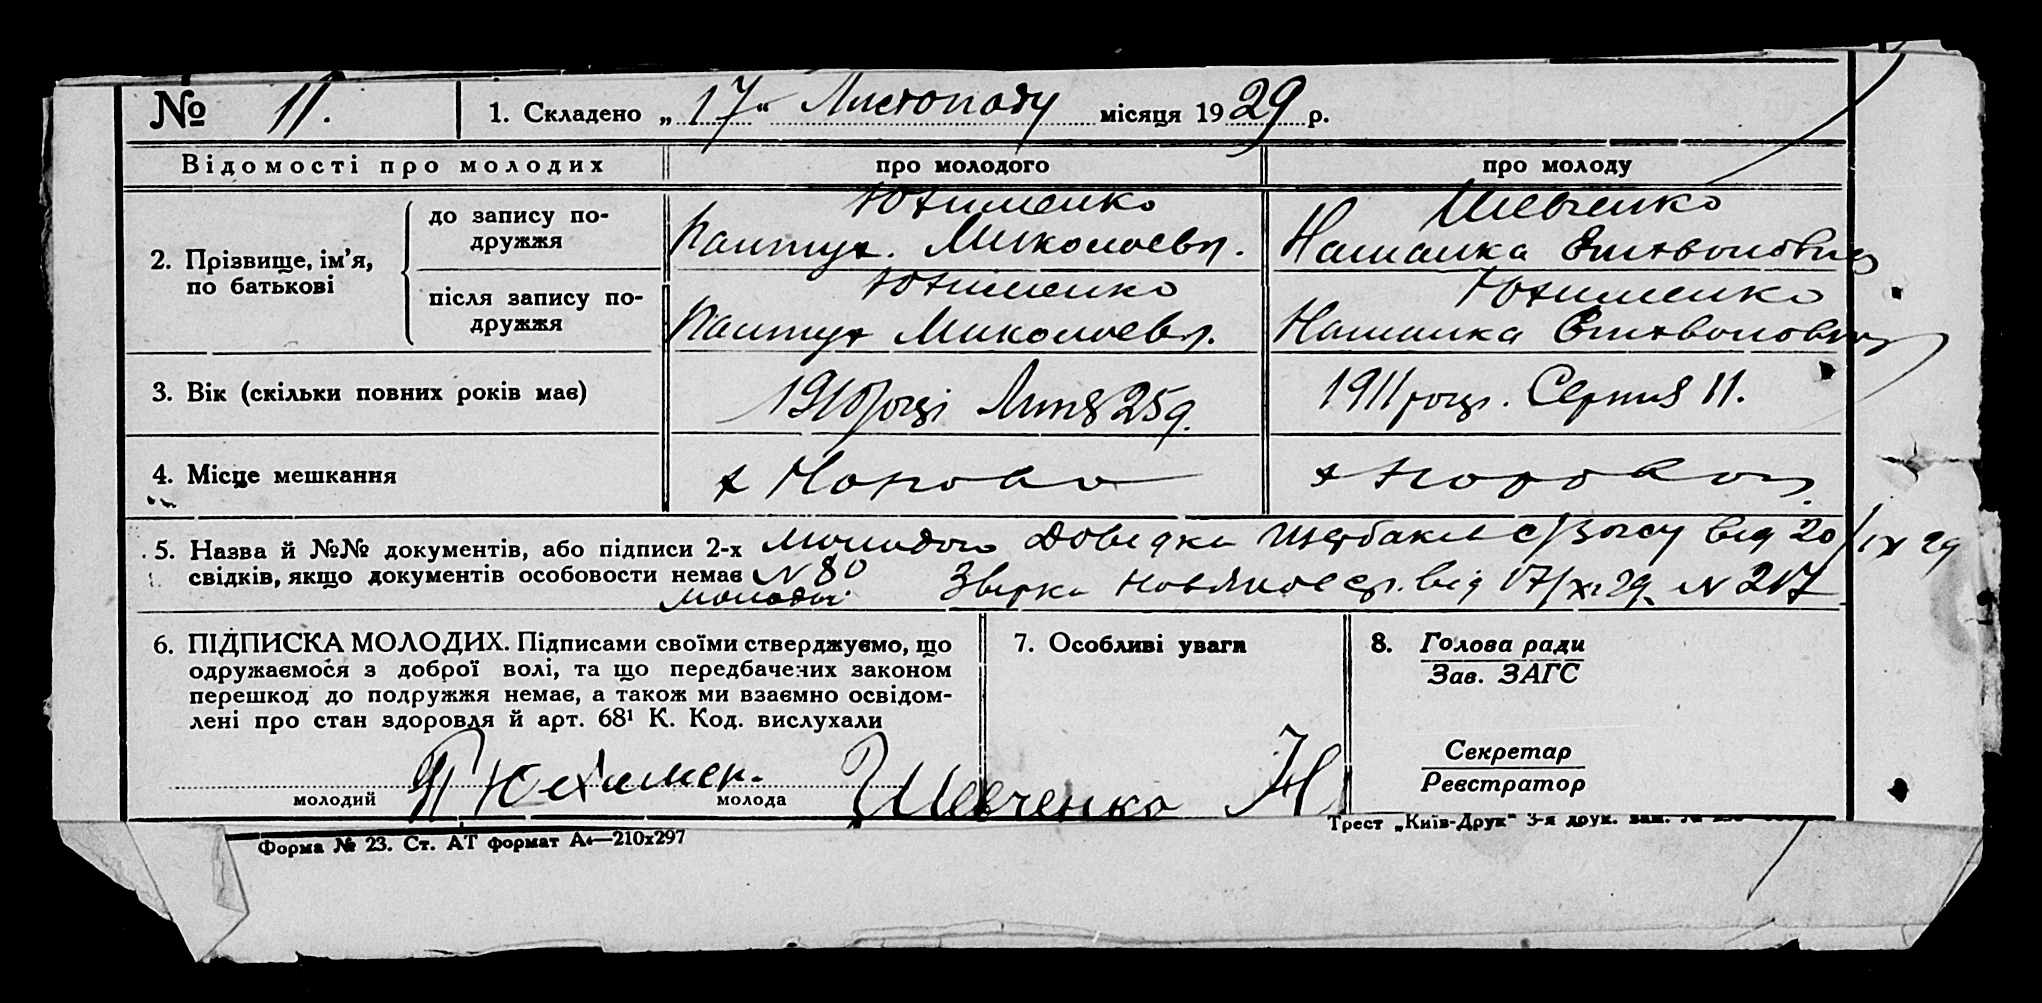 № 11. 1. Складено „17“ Листопаду місяця 1929 р.
Відомості про молодих про молодого про молоду
2. Прізвище, ім’я, по батькові
до запису подружжя
Юхименко
Миколаевич.
Шевченко
після запису подружжя
Юхименко
Миколаевич.
Юхименко
3. Вік (скільки повних років має) 1910 році Липня 25 д. 1911 році. Серпня 11.
4. Місце мешкання х
5. Назва й №№ документів, або підписи 2-х молодого Довідка с/ від 20/IX 29
свідків, якщо документів особовости немає N 80
молодої від 17/XI 29. N 217
6. ПІДПИСКА МОЛОДИХ. Підписами своїми стверджуємо, що
одружаємося з доброї волі, та що передбачених законом
перешкод до подружжя немає, а також ми взаємно освідом-
лені про стан здоровля й арт. 68¹ К. Код. вислухали
П Юхимен.
молодий
Шевченко Н
молода
7. Особливі уваги
8. Голова ради
Зав. ЗАГС
Секретар
Реєстратор
Форма № 23. Ст. АТ формат А4—210х297
Трест „Київ-Друк“ 3-я друк. зам. №